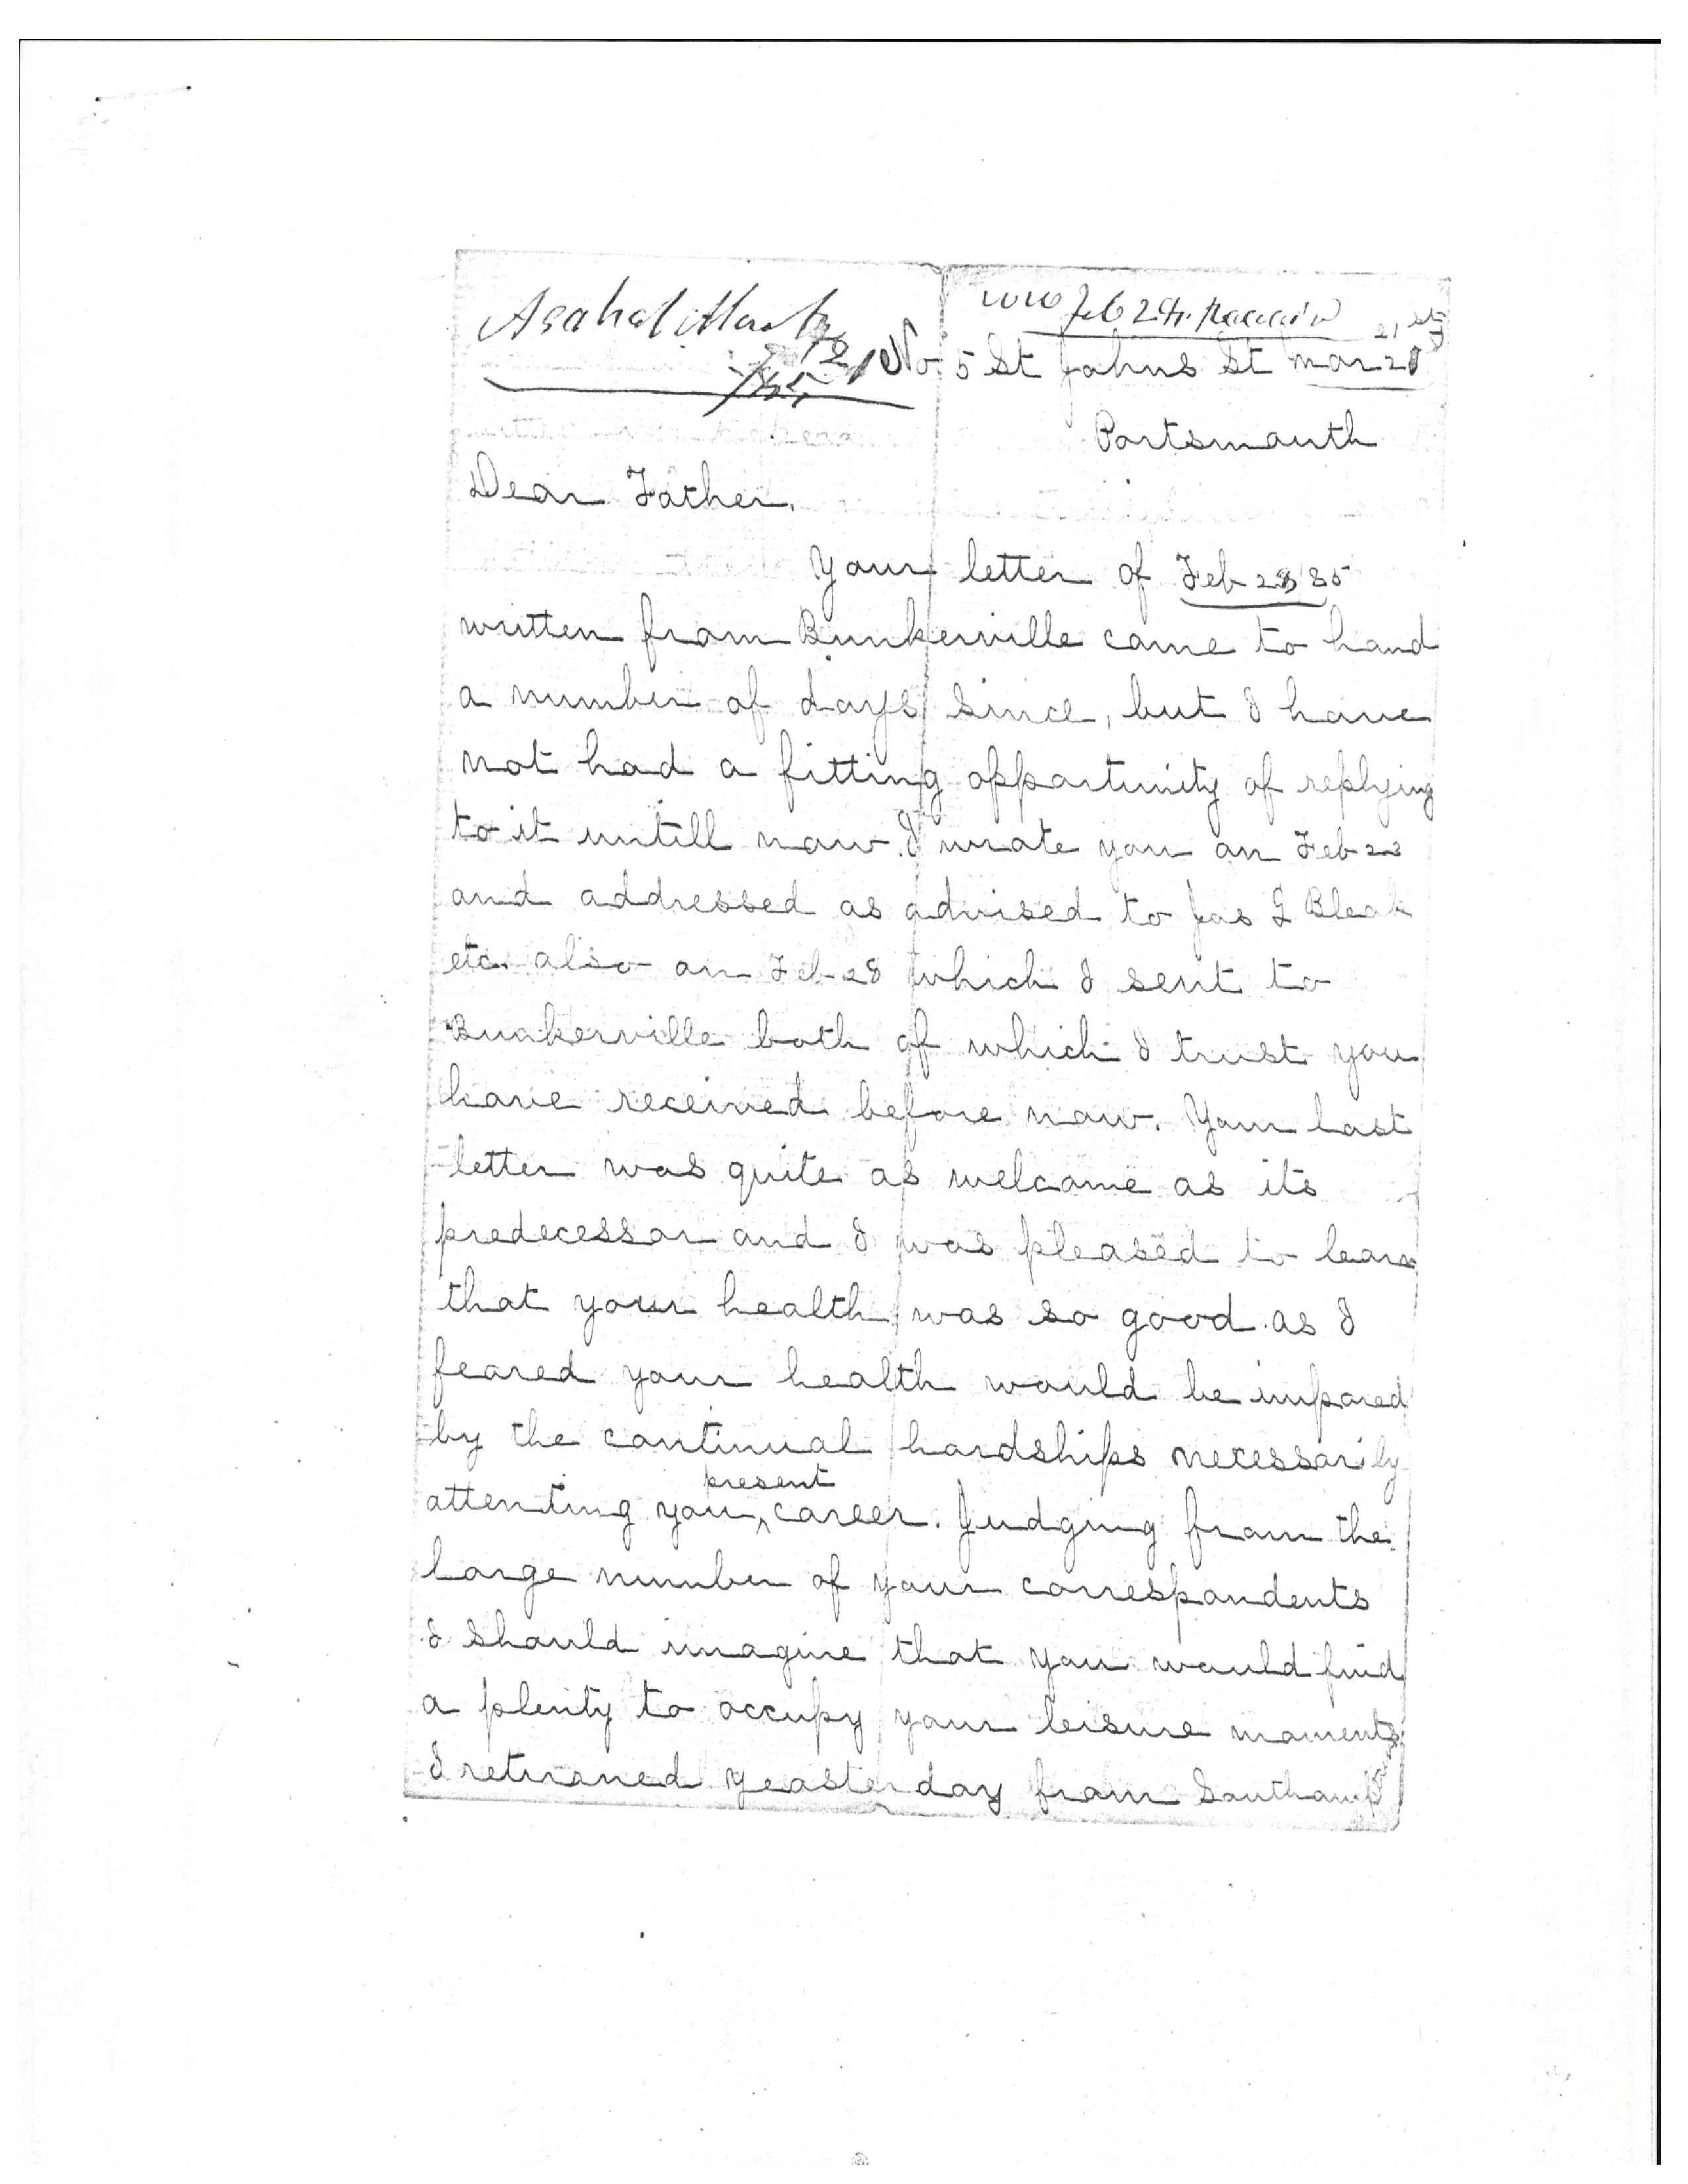 Feb 28
No 5 St Johns St Mar 21
Portsmouth
Dear Father,
Your letter of Feb 28 85
written from Bunkerville came to hand
a number of days since, but I have
not had a fitting opportunity of replying
to it untill now. I wrote you on Feb 23
and addressed as advised to Jas G Bleak
etc. also on Feb 28 which I sent to
Bunkerville both of which I trust you
have received before now. Your last
letter was quite as welcome as its
predecessor and I was pleased to learn
that your health was so good as I
feared your health would be impared
by the continual hardships necessarily
present
attenting your career. Judging from the
large number of your correspondents
I should imagine that you would find
a plenty to occupy your leisure moments
I returned yeasterday from Southampton